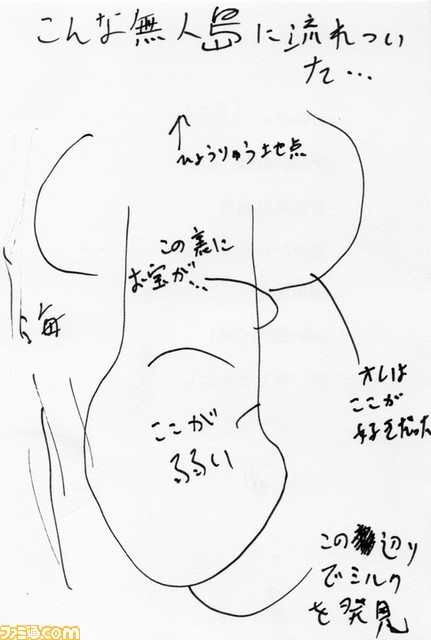 こんな無人島に流れつい
た…
ひょうりゅう地点
この裏に
お宝が…
海
オレは
ここが
好きだった
ここが
ゆるい
この辺り
でミルク
を発見
ファミ通.com